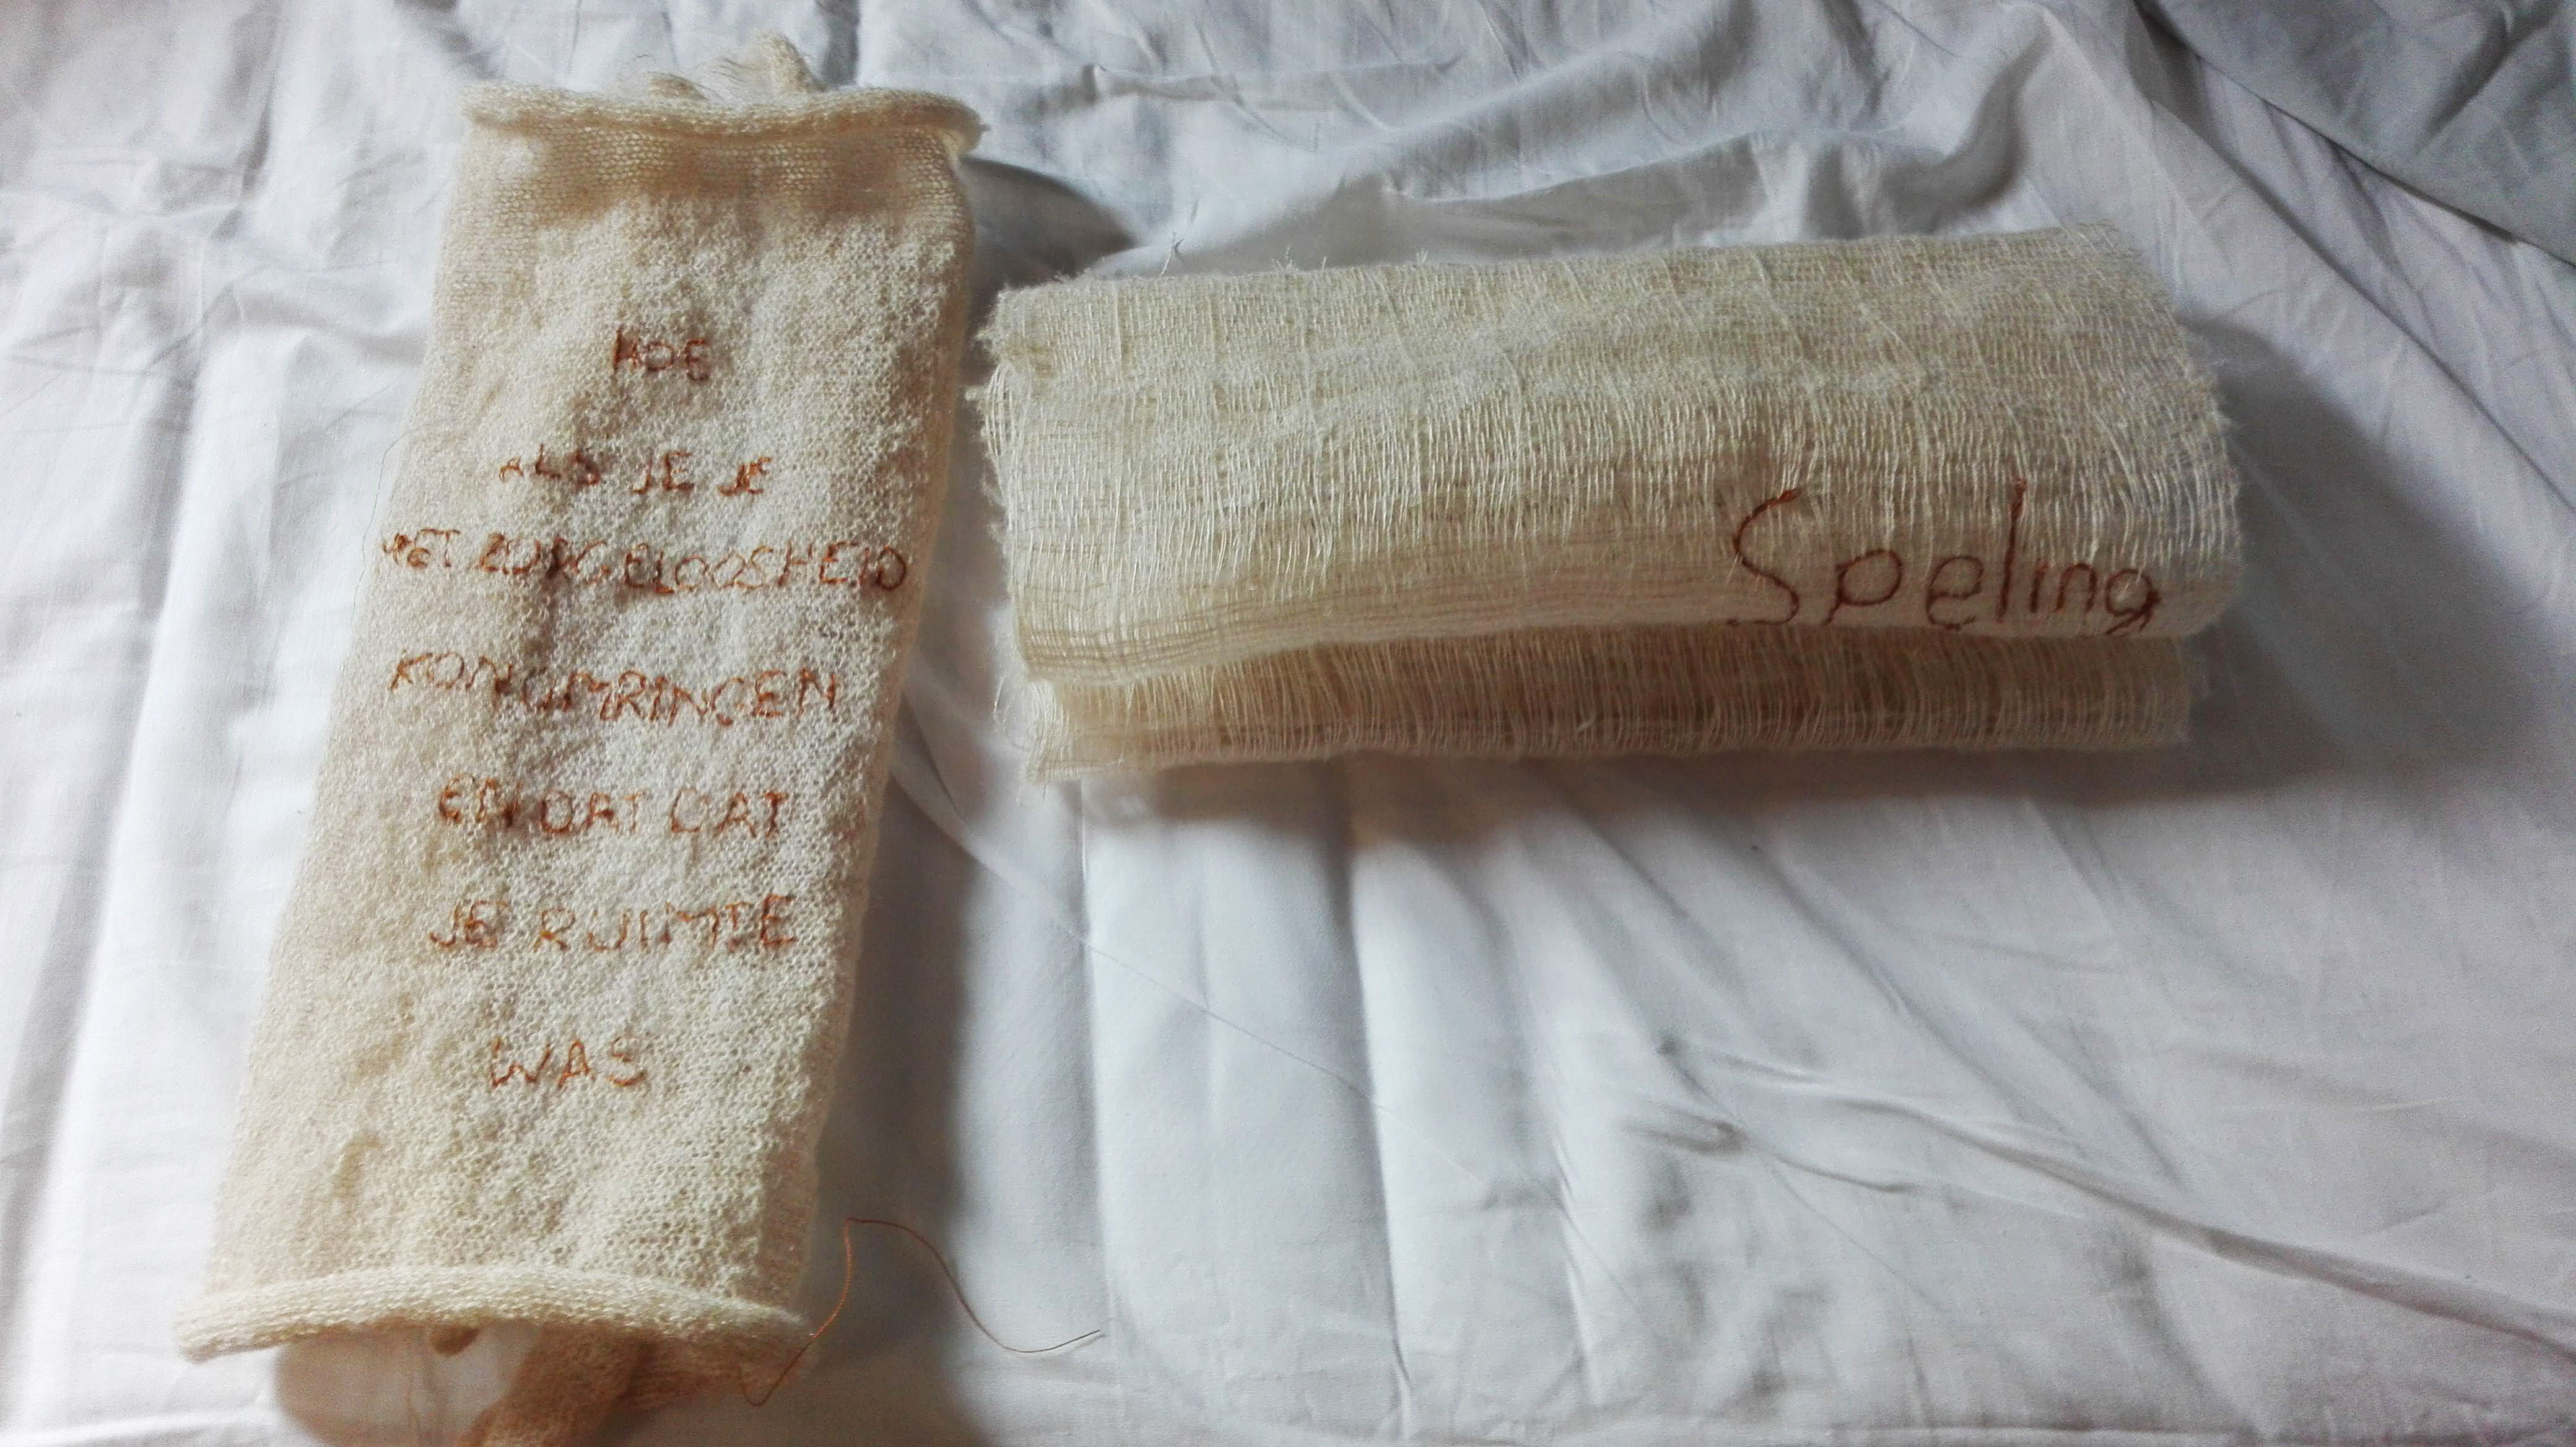 HOE
ALS JE JE
MET ZORGELOOSHEID
KON OMRINGEN
EN DAT DAT
JE RUIMTE
WAS
Speling